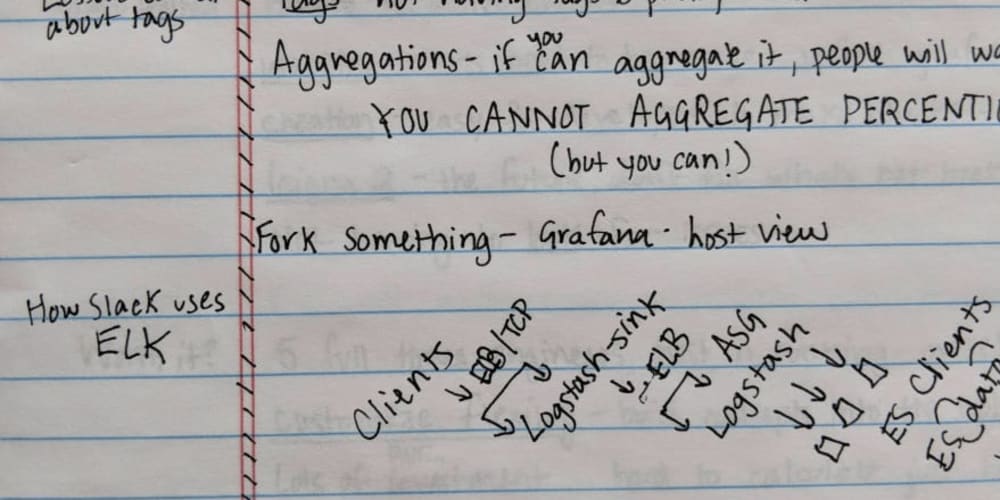 about tags
Aggregations - if you can aggregate it, people will
YOU CANNOT AGGREGATE
(but you can!)
Fork something - Grafana - host view
How Slack uses
ELK
Clients
ELB/TCP
Logstash-sink
ELB
ASG
Logstash
ES Clients
ES data